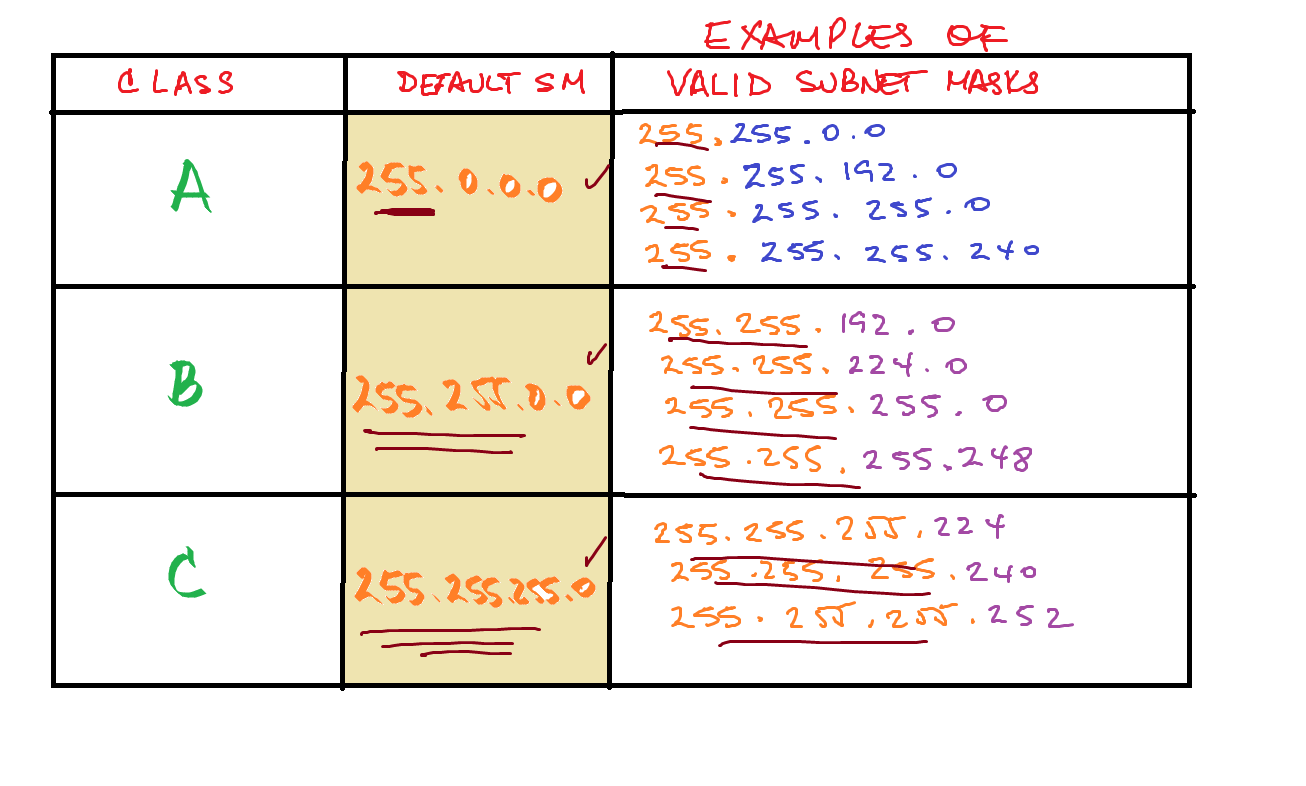 EXAMPLES OF
CLASS DEFAULT SM VALID SUBNET MASKS
A
255.0.0.0
255.255.0.0
255.255.192.0
255.255.255.0
255.255.255.240
B
255.255.0.0
255.255.192.0
255.255.224.0
255.255.255.0
255.255.255.248
C
255.255.255.0
255.255.255.224
255.255.255.240
255.255.255.252